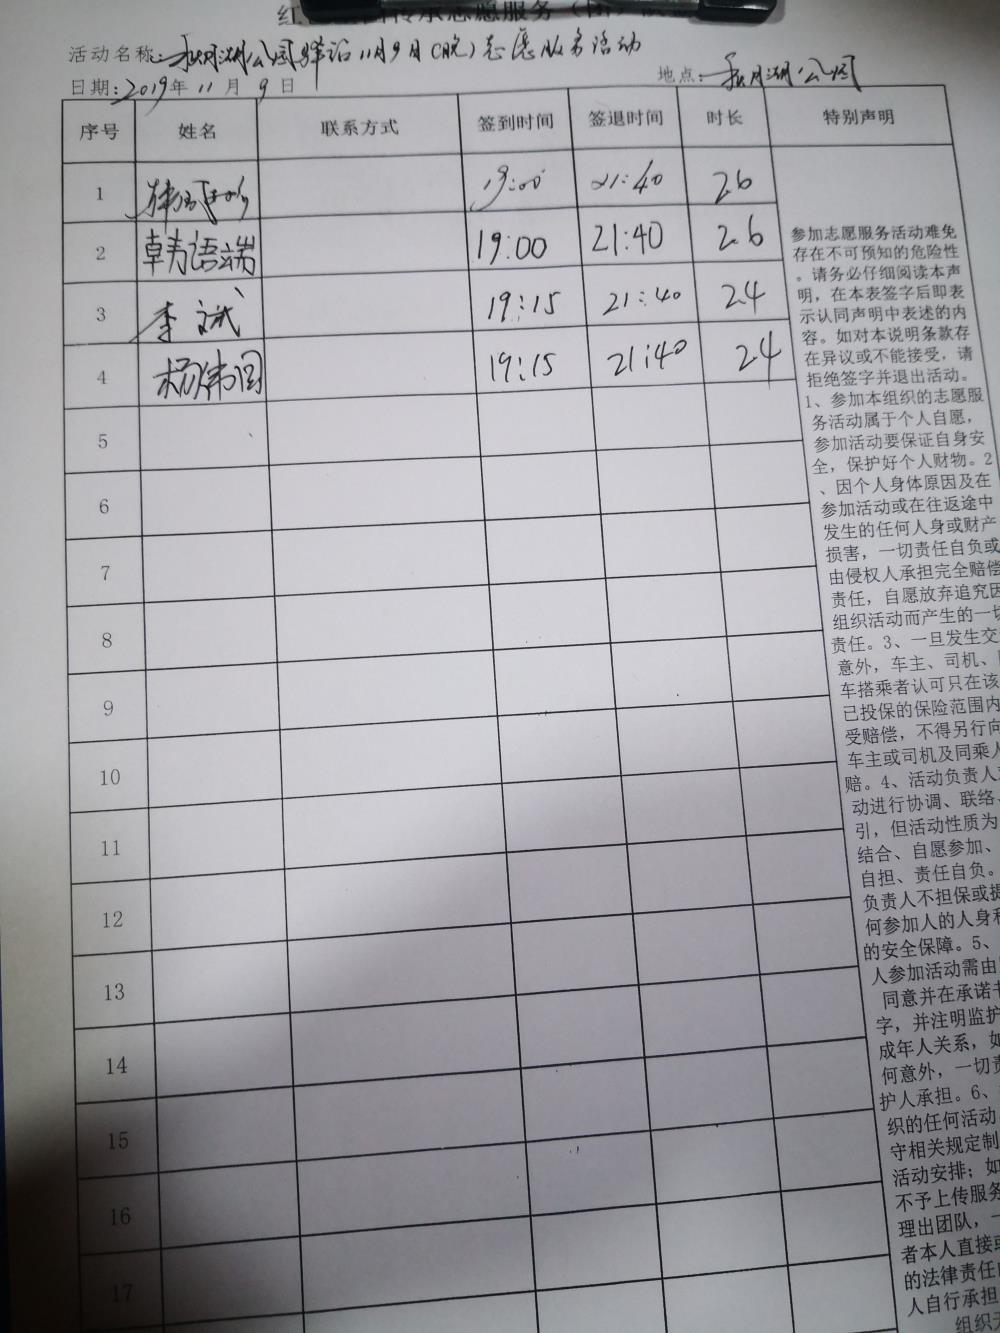 志愿服务
活动名称：秋月湖公园驿站11月9日（晚）志愿服务活动
日期：2019年11月9日 地点：秋月湖公园
序号 姓名 联系方式 签到时间 签退时间 时长 特别声明
1 19:00 21:40 2.6
2 韩語端 19:00 21:40 2.6
3 李斌 19:15 21:40 2.4
4 杨伟国 19:15 21:40 2.4
5
6
7
8
9
10
11
12
13
14
15
16
17
参加志愿服务活动难免
存在不可预知的危险性
。请务必仔细阅读本声
明，在本表签字后即表
示认同声明中表述的内
容。如对本说明条款存
在异议或不能接受，请
拒绝签字并退出活动。
1、参加本组织的志愿服
务活动属于个人自愿，
参加活动要保证自身安
全，保护好个人财物。2
、因个人身体原因及在
参加活动或在往返途中
发生的任何人身或财产
损害，一切责任自负或
由侵权人承担完全赔偿
责任，自愿放弃追究因
组织活动而产生的一切
责任。3、一旦发生交
意外，车主、司机、
车搭乘者认可只在该
已投保的保险范围内
受赔偿，不得另行向
车主或司机及同乘人
赔。4、活动负责人
动进行协调、联络、
引，但活动性质为
结合、自愿参加、
自担、责任自负。
负责人不担保或提
何参加人的人身和
的安全保障。5、
人参加活动需由
同意并在承诺书
字，并注明监护
成年人关系，如
何意外，一切责
护人承担。6、
织的任何活动
守相关规定制
活动安排；如
不予上传服务
理出团队，一
者本人直接或
的法律责任
人自行承担
组织